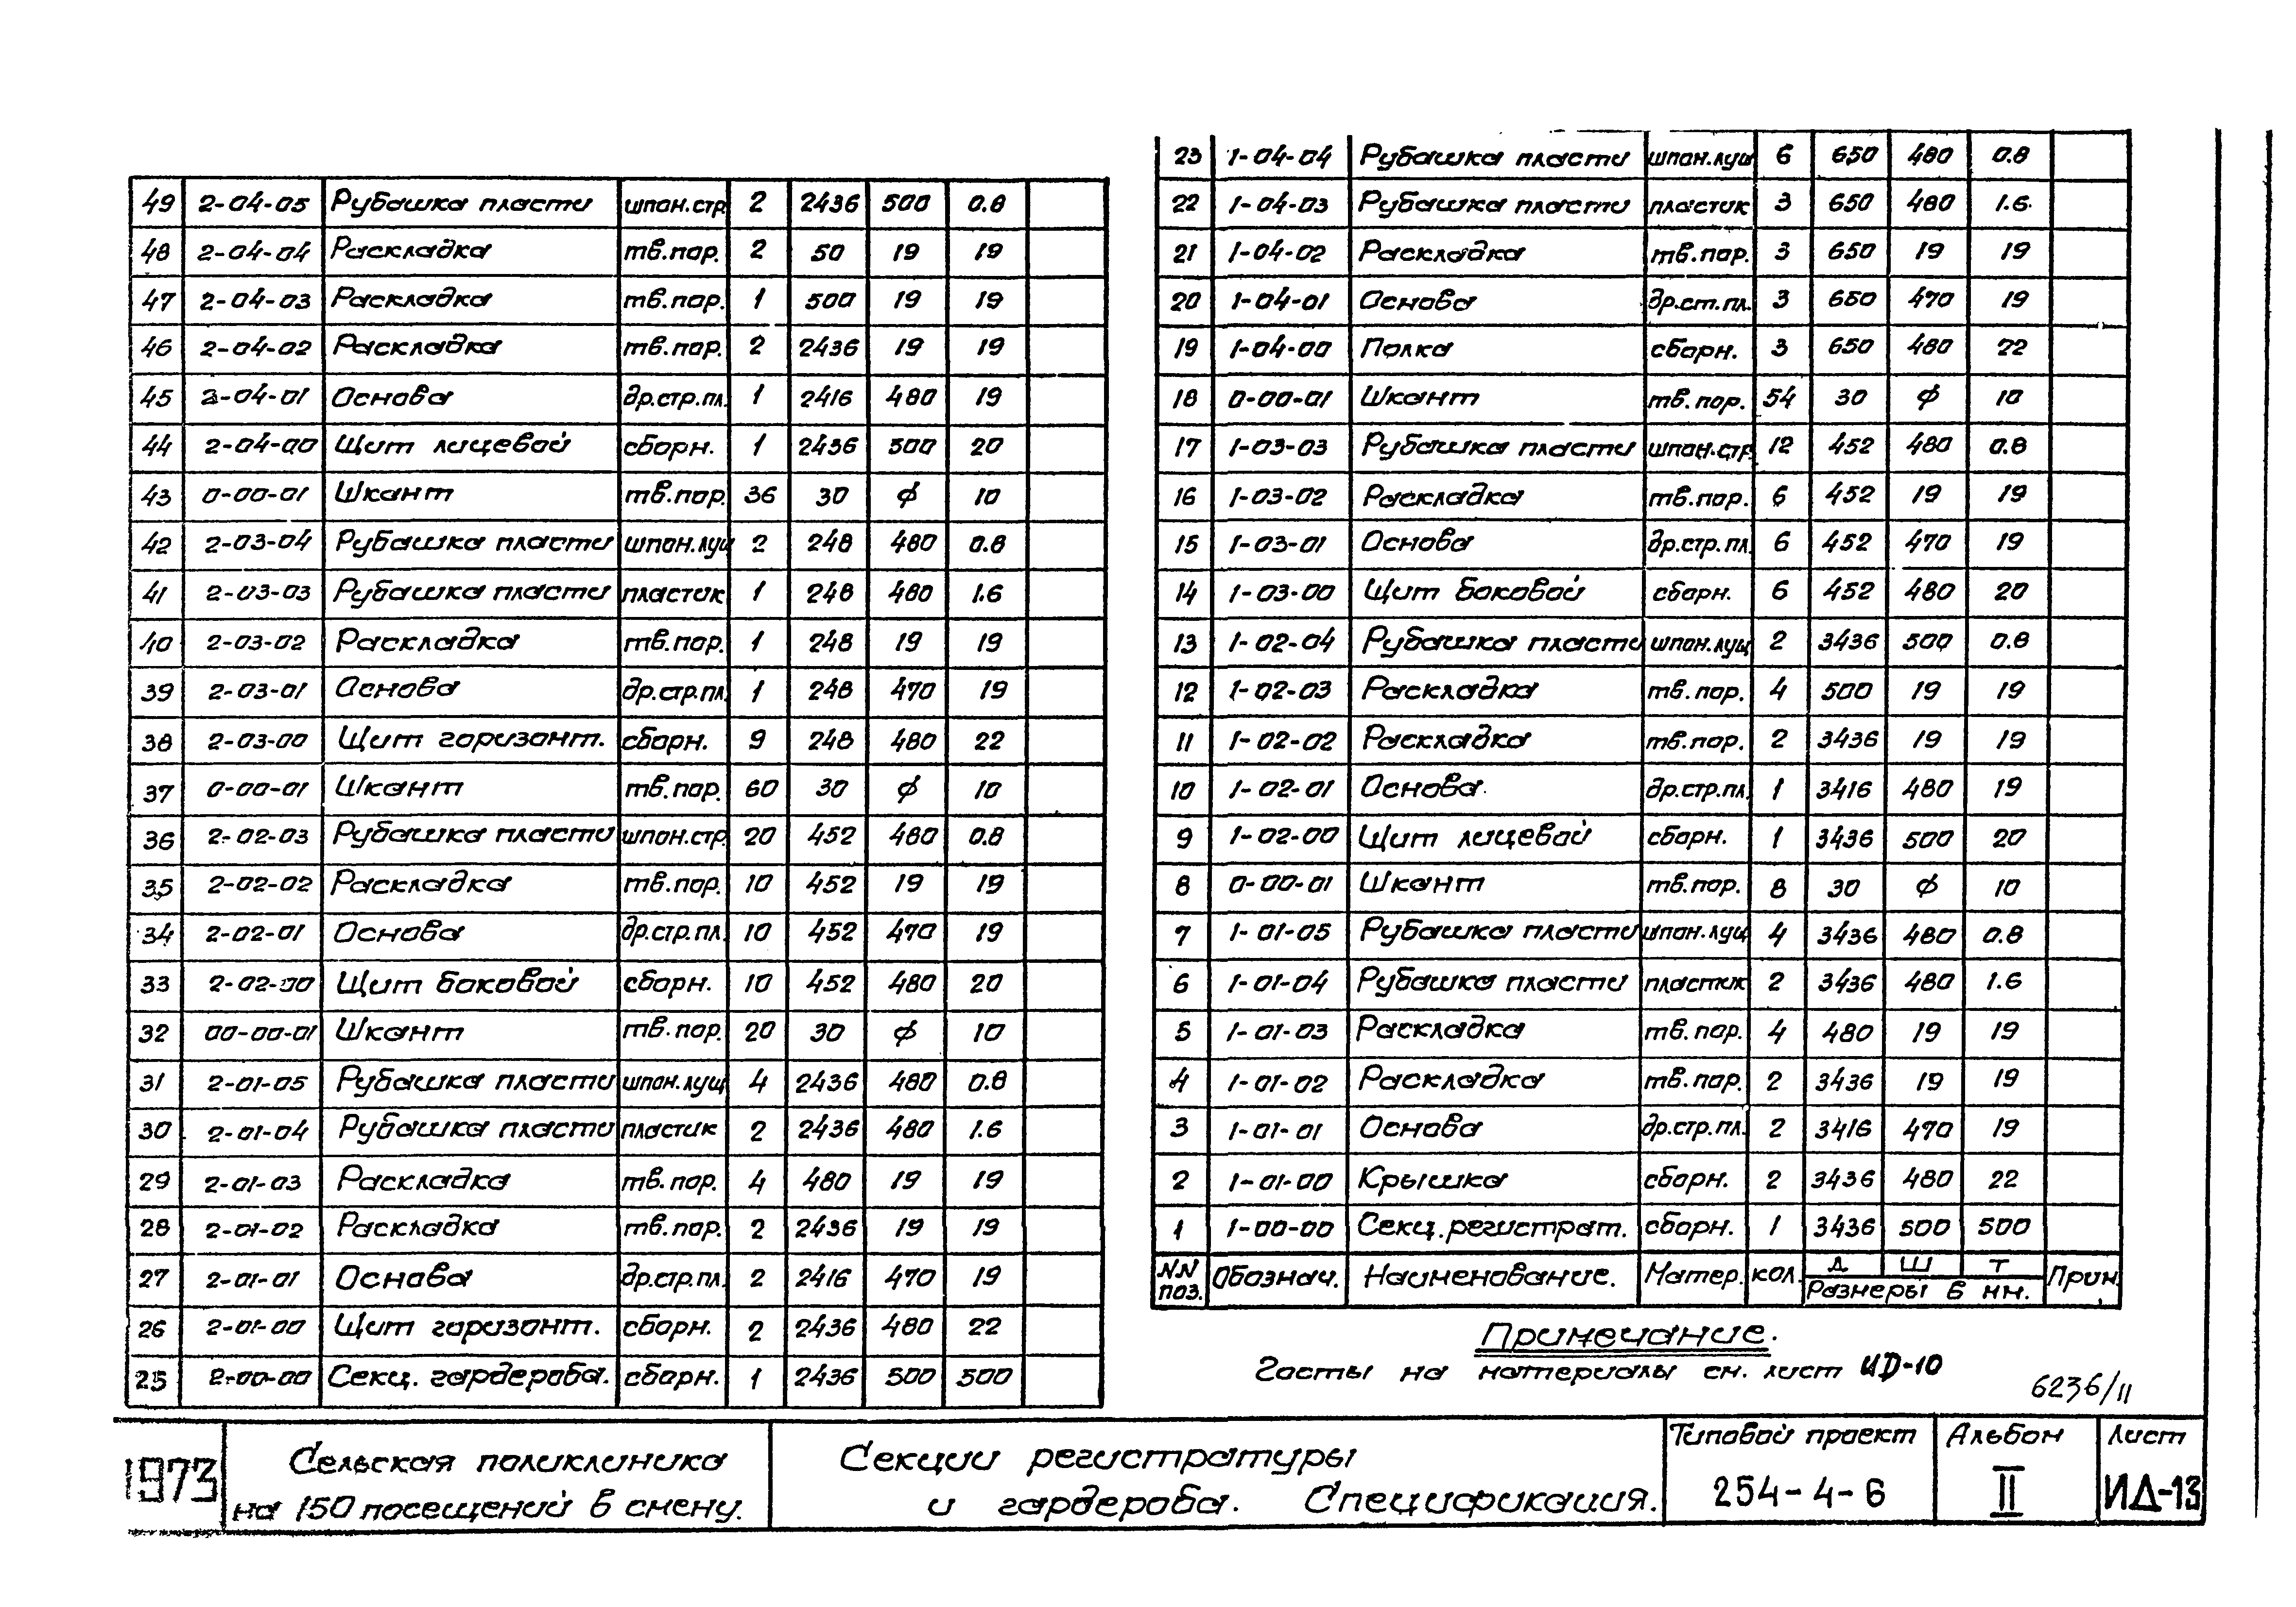 49 2-04-05 Рубашка пласти шпан.стр 2 2436 500 0.8
48 2-04-04 Раскладка тв.пор. 2 50 19 19
47 2-04-03 Раскладка тв.пор. 1 500 19 19
46 2-04-02 Раскладка тв.пор. 2 2436 19 19
45 2-04-01 Основа др.стр.пл. 1 2416 480 19
44 2-04-00 Щит лицевой сборн. 1 2436 500 20
43 0-00-01 Шкант тв.пор. 36 30 ф 10
42 2-03-04 Рубашка пласти шпон.лущ 2 248 480 0.8
41 2-03-03 Рубашка пласти пластик 1 248 480 1.6
40 2-03-02 Раскладка тв.пор. 1 248 19 19
39 2-03-01 Основа др.стр.пл. 1 248 470 19
38 2-03-00 Щит горизонт. сборн. 9 248 480 22
37 0-00-01 Шкант тв.пор. 60 30 ф 10
36 2-02-03 Рубашка пласти шпон.стр. 20 452 480 0.8
35 2-02-02 Раскладка тв.пор. 10 452 19 19
34 2-02-01 Основа др.стр.пл. 10 452 470 19
33 2-02-00 Щит боковой сборн. 10 452 480 20
32 00-00-01 Шкант тв.пор. 20 30 ф 10
31 2-01-05 Рубашка пласти шпон.лущ 4 2436 480 0.8
30 2-01-04 Рубашка пласти пластик 2 2436 480 1.6
29 2-01-03 Раскладка тв.пор. 4 480 19 19
28 2-01-02 Раскладка тв.пор. 2 2436 19 19
27 2-01-01 Основа др.стр.пл. 2 2416 470 19
26 2-01-00 Щит горизонт. сборн. 2 2436 480 22
25 2-00-00 Секц. гардероба. сборн. 1 2436 500 500
23 1-04-04 Рубашка пласти шпон.лущ 6 650 480 0.8
22 1-04-03 Рубашка пласти пластик 3 650 480 1.6
21 1-04-02 Раскладка тв.пор. 3 650 19 19
20 1-04-01 Основа др.ст.пл. 3 650 470 19
19 1-04-00 Полка сборн. 3 650 480 22
18 0-00-01 Шкант тв.пор. 54 30 ф 10
17 1-03-03 Рубашка пласти шпон.стр. 12 452 480 0.8
16 1-03-02 Раскладка тв.пор. 6 452 19 19
15 1-03-01 Основа др.стр.пл. 6 452 470 19
14 1-03-00 Щит боковой сборн. 6 452 480 20
13 1-02-04 Рубашка пласти шпон.лущ 2 3436 500 0.8
12 1-02-03 Раскладка тв.пор. 4 500 19 19
11 1-02-02 Раскладка тв.пор. 2 3436 19 19
10 1-02-01 Основа др.стр.пл. 1 3416 480 19
9 1-02-00 Щит лицевой сборн. 1 3436 500 20
8 0-00-01 Шкант тв.пор. 8 30 ф 10
7 1-01-05 Рубашка пласти шпон.лущ 4 3436 480 0.8
6 1-01-04 Рубашка пласти пластик 2 3436 480 1.6
5 1-01-03 Раскладка тв.пор. 4 480 19 19
4 1-01-02 Раскладка тв.пор. 2 3436 19 19
3 1-01-01 Основа др.стр.пл. 2 3416 470 19
2 1-01-00 Крышка сборн. 2 3436 480 22
1 1-00-00 Секц.регистрат. сборн. 1 3436 500 500
NN поз. Обознач. Наименование. Матер. кол. Д Ш Т Прим.
Размеры в мм.
Примечание.
Госты на материалы см. лист ИД-10
6236/II
1973
Сельская поликлиника
на 150 посещений в смену.
Секции регистратуры
и гардероба. Спецификация.
Типовой проект
254-4-6
Альбом
II
Лист
ИД-13